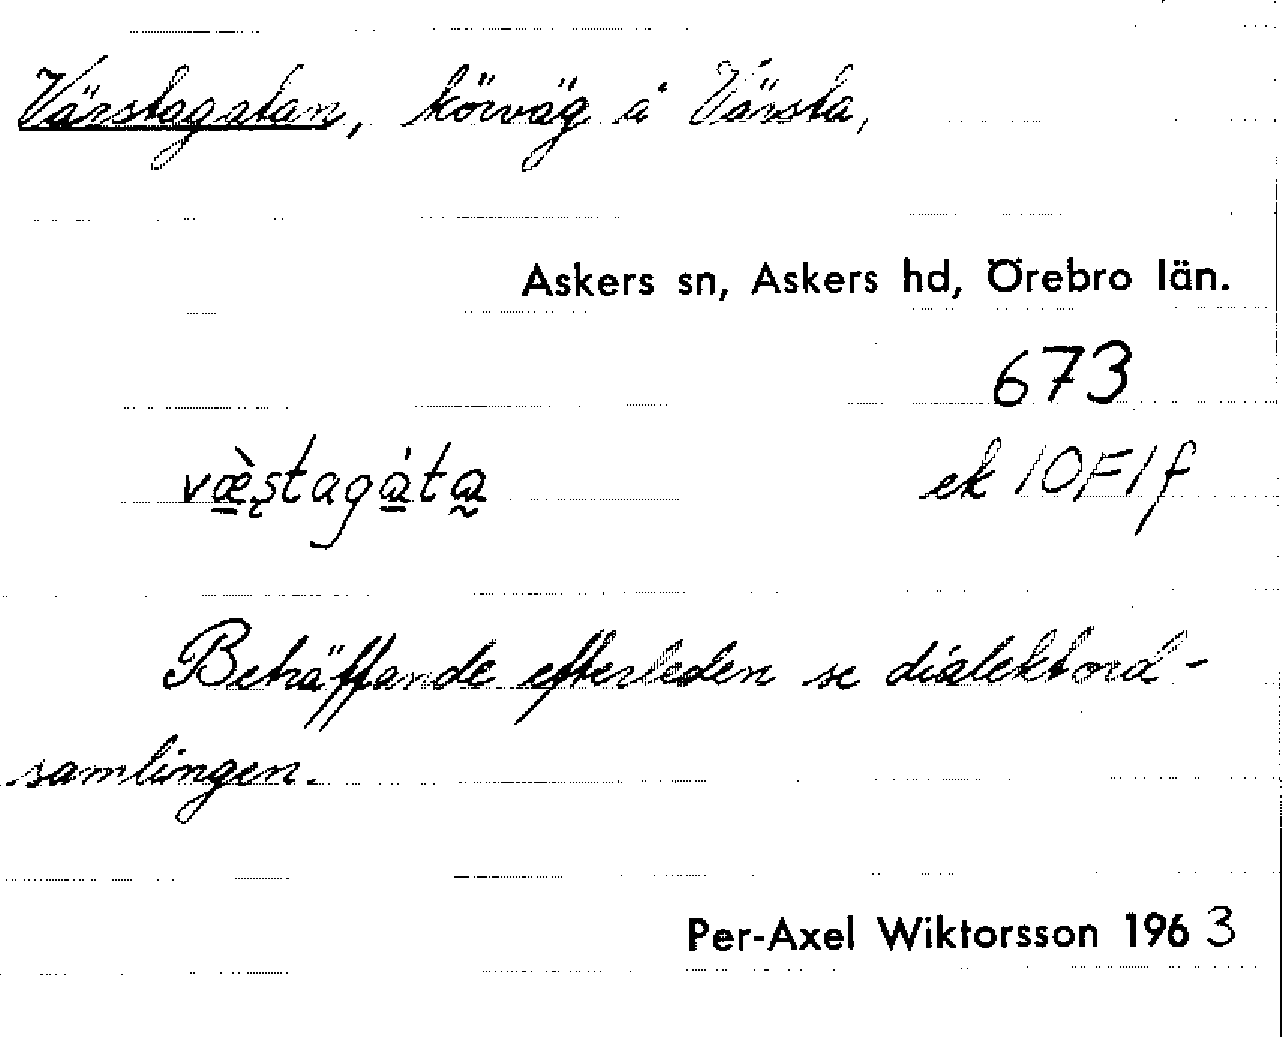 Värstagatan, körväg å Värsta,
Askers sn, Askers hd, Örebro län.
673
væ̀ştagáta ek 10F1f
Beträffande efterleden se dialektord-
samlingen.
Per-Axel Wiktorsson 1963